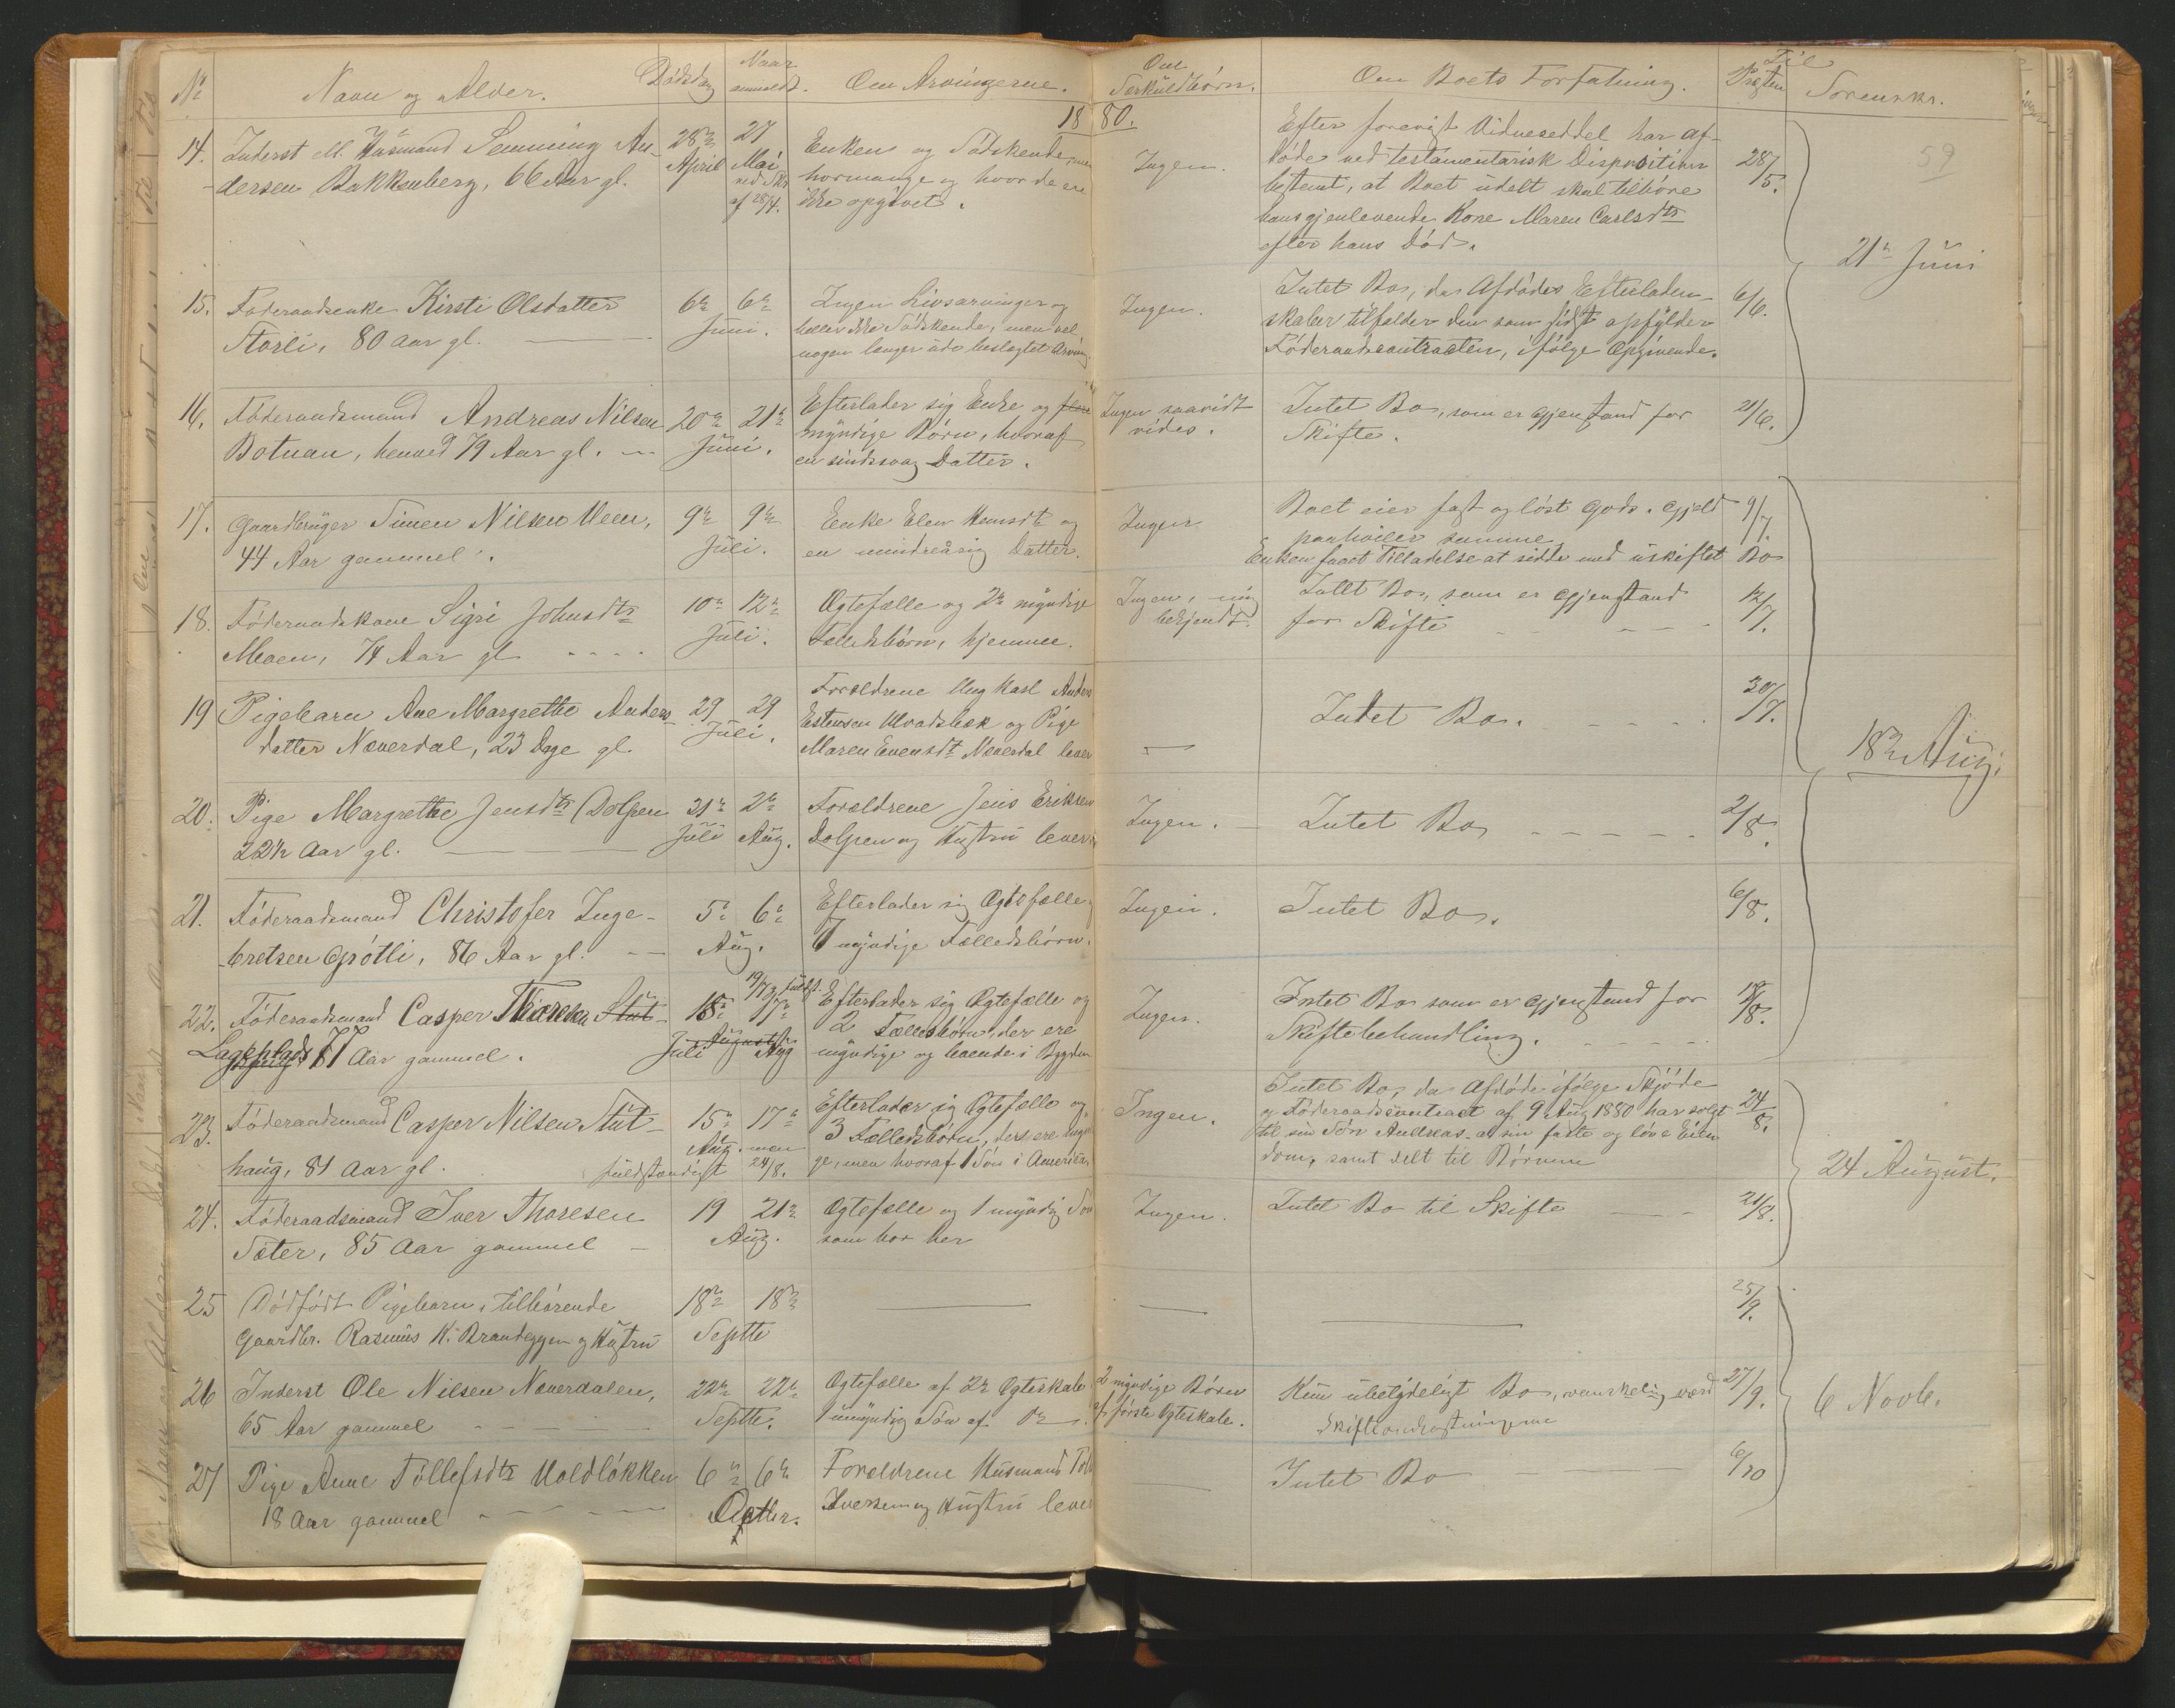 No
Navn og Alder.
Dödsdag
Naar anmeldt.
Om Arvingerne.
Om Særkuldbörn.
Om Boets Forfatning.
Til Præsten
Sorenskr.
1880.
59
14. Inderst M. Husmand Semming An-
dersen Bakkenberg, 66 Aar gl.
28de April
27 Mai
ved Skr.
af 28/4.
Enken og Södskende, men
hvormange og hvor de ere
ikke opgivet.
Ingen.
Efter forevist Vidneseddel har af-
döde ved testamentarisk Disposition
bestemt, at Boet udelt skal tilhöre
hans gjenlevende Kone Maren Carlsdtr
efter hans Död.
28/5.
21de Juni
15. Föderaadsenke Kirsti Olsdatter
Storli, 80 Aar gl.
6te 6te
Juni.
Ingen Livsarvinger og
heller ikke Södskende, men vel
nogen længer ude beslægtet Arving
Ingen.
Intet Bo, da Afdödes Efterladen-
skaber tilfalder den som sidst opfylder
Föderaadscontracten, ifölge Opgivende.
6/6.
16. Föderaadsmand Andreas Nilsen
Botnan, henved 79 Aar gl.
20de 21de
Juni.
Efterlader sig Enke og flere
myndige Börn, hvoraf
en sindssvag Datter.
Ingen saavidt
vides.
Intet Bo, som er Gjenstand for
Skifte.
21/6.
17. Gaardbruger Simen Nilsen Meen,
44 Aar gammel.
9de 9de
Juli.
Enke Elen Hansdtr og
en mindreårig Datter.
Ingen
Boet eier fast og löst Gods. Gjeld
paahviler samme
Enken faaet Tilladelse at sidde med uskiftet Bo
9/7.
18. Föderaadskone Sigri Johnsdtr
Moen, 74 Aar gl
10de 12te
Juli.
Ogtefælle og 2de myndige
Fælledsbörn, hjemme.
Ingen, mig
bekjendt.
Intet Bo, som er Gjenstand
for Skifte
12/7.
19 Pigebarn Ane Margrethe Anders-
datter Næverdal, 23 Dage gl.
29 29
Juli.
Forældrene Ung Karl Anders
Estensen Ulvadsbæk og Pige
Maren Evensdtr Næverdal lever
Intet Bo.
30/7.
18de Aug.
20. Pige Margrethe Jensdtr Dolpen
22½ Aar gl.
31te Juli
2de Aug.
Forældrene Jens Eriksen
Dolpen og Hustru lever
Ingen.
Intet Bo
2/8.
21. Föderaadsmand Christofer Inge-
bretsen Grötli, 86 Aar gl.
5te 6te
Aug.
Efterlader sig Ogtefælle
7 myndige Fælledsbörn.
Ingen.
Intet Bo.
6/8.
22. Föderaadsmand Casper Thoresen Stut-
Lageplads 87 Aar gammel.
15de 17de
Juli August Aug
Efterlader sig Ogtefælle og
2 Fællesbörn, der ere
myndige og boende i Bygden
Ingen.
Intet Bo som er Gjenstand for
Skiftebehandling.
18/8.
23. Föderaadsmand Casper Nilsen Stut-
haug, 81 Aar gl.
15de 17de
Aug. men
fuldstændigt 24/8.
Efterlader sig Ogtefælle og
3 Fælledsbörn, der ere myndi-
ge, men hvoraf 1 Sön i Amerika.
Ingen.
Intet Bo, da Afdöde ifölge Skjöde
og Föderaadscontract af 9 Aug 1880 har solgt
til sin Sön Andreas al sin faste og löse Eien
dom, samt delt til Börnene
24/8.
24 August.
24. Föderaadsmand Iver Thoresen
Sæter, 85 Aar gammel
19 21de
Aug.
Ogtefælle og 1 myndig Sön
som bor her
Ingen.
Intet Bo til Skifte
21/8.
25 Dödfödt Pigebarn, tilhörende
Gaardbr. Rasmus K. Brandeggen og Hustru
18de 18de
Septbr
25/9.
26 Inderst Ole Nilsen Næverdalen,
65 Aar gammel
22de 22de
Septbr.
Ogtefælle af 2de Ogteskab
1 umyndig Sön af do
2 myndige Börn
af förste Ogteskab.
Kun ubetydeligt Bo, vanskelig værd
Skifteomkostningerne
27/9.
6 Novb.
27 Pige Anne Tollefsdtr Voldlökken
18 Aar gammel
6te 6te
Octbr.
Forældrene Husmand Toll
Iversen og Hustru lever
Intet Bo
6/10